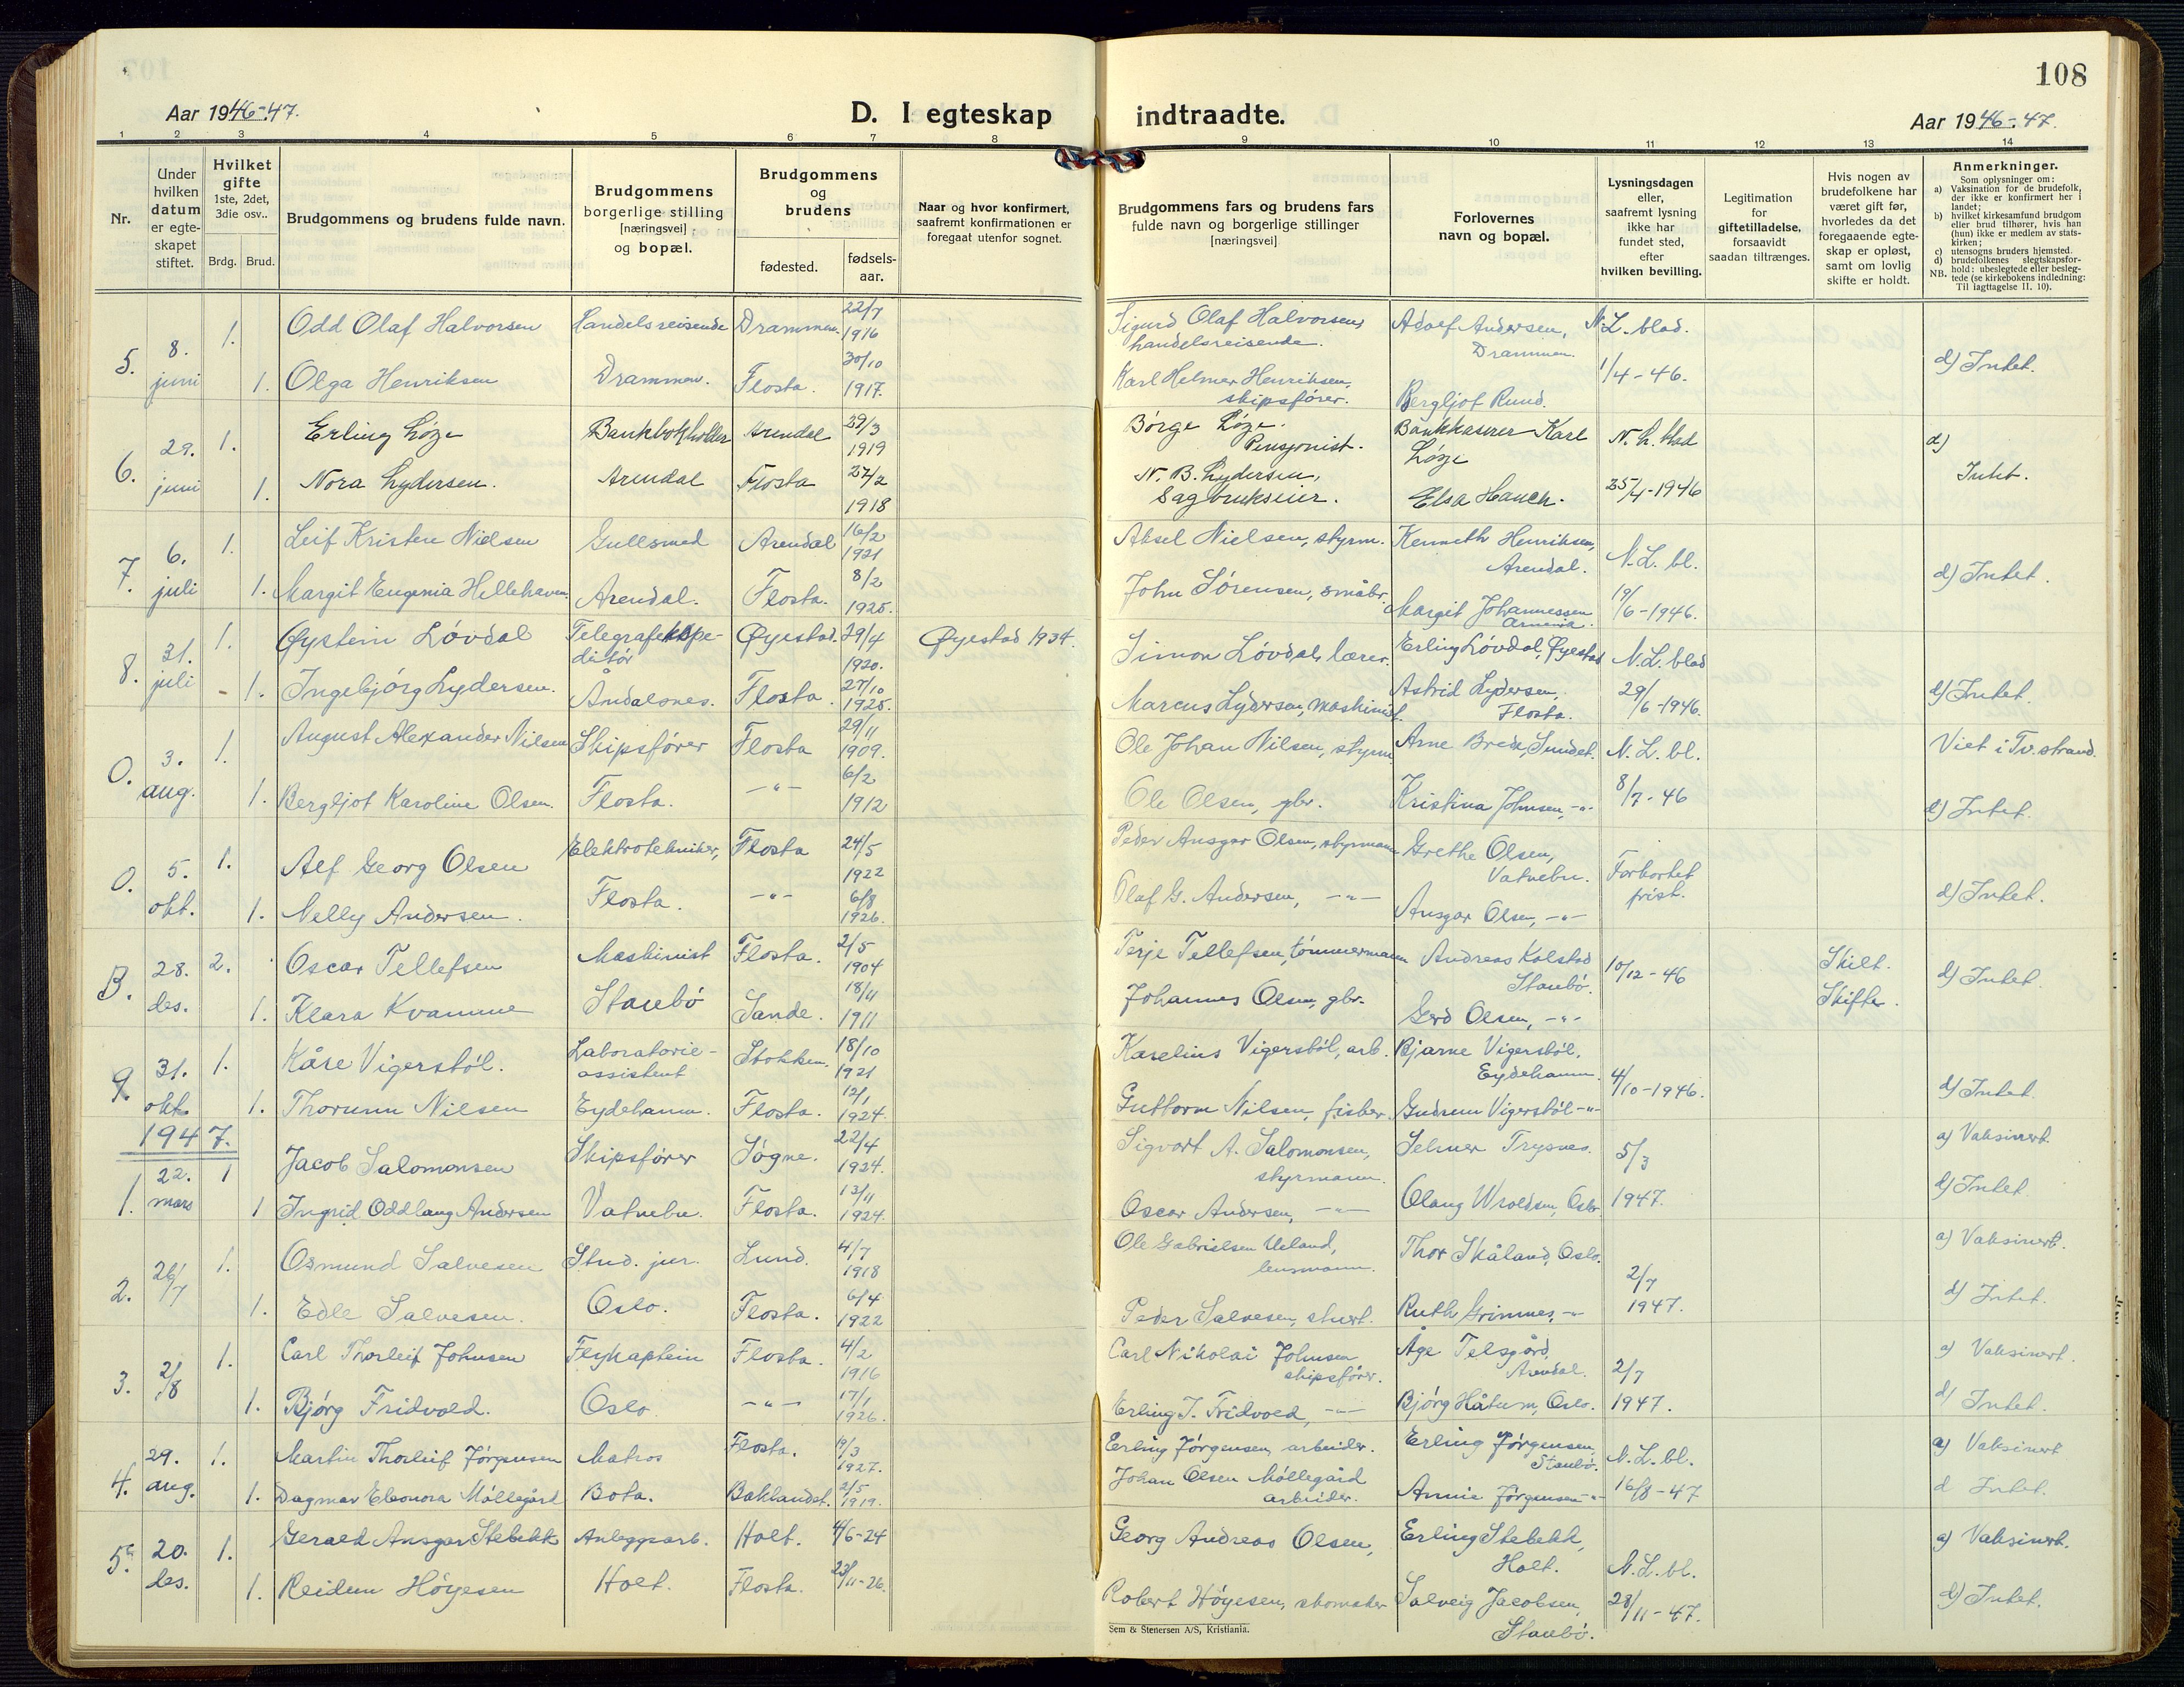 108
Aar 1946-47.
D. I egteskap indtraadte.
Aar 1946-47.
1 2 3 4 5 6 7 8 9 10 11 12 13 14
Nr.
Under hvilken datum er egteskapet stiftet.
Hvilket gifte 1ste, 2det, 3die osv..
Brdg. Brud.
Brudgommens og brudens fulde navn.
Brudgommens borgerlige stilling [næringsvei] og bopæl.
Brudgommens og brudens
fødested.
fødsels-aar.
Naar og hvor konfirmert, saafremt konfirmationen er foregaat utenfor sognet.
Brudgommens fars og brudens fars fulde navn og borgerlige stillinger [næringsvei]
Forlovernes navn og bopæl.
Lysningsdagen eller, saafremt lysning ikke har fundet sted, efter hvilken bevilling.
Legitimation for giftetilladelse, forsaavidt saadan tiltrænges.
Hvis nogen av brudefolkene har været gift før, hvorledes da det foregaaende egteskap er opløst, samt om lovlig skifte er holdt.
Anmerkninger.
Som oplysninger om:
a) Vaksination for de brudefolk, der ikke er konfirmert her i landet;
b) hvilket kirkesamfund brudgom eller brud tilhører, hvis han (hun) ikke er medlem av statskirken;
c) utensogns bruders hjemsted.
d) brudefolkenes slegtskapsforhold: ubeslegtede eller beslegtede (se kirkebokens indledning:
NB. Til iagttagelse II. 10).
5. 8. juni 1. Odd Olaf Halvorsen Handelsreisende Drammen. 22/7 1916 Sigurd Olaf Halvorsen, handelsreisende. Adolf Andersen, Drammen. N.L. blad.
1. Olga Henriksen Drammen. Flosta. 30/10 1917. Karl Helmer Henriksen, skipsfører. Bergljot Rund. 1/4-46. d) Intet.
6. 29. juni 1. Erling Løze Bankbokholder Arendal 29/3 1919 Børge Løze. Pensjonist. Bankkaserer Karl Løze N. L. blad d)
1. Nora Lydersen. Arendal Flosta 27/2 1918 N. B. Lydersen, Sagbrukseier. Elsa Hauch. 25/4-1946 Intet.
7. 6. juli 1. Leif Kristen Nielsen Gullsmed Arendal 16/2 1921 Aksel Nielsen, styrm. Kenneth Henriksen, Arendal. N.L. bl.
1. Margit Eugenia Hellehaven. Arendal. Flosta. 8/2 1925. John Sørensen, småbr. Margit Johannessen 19/6-1946. d) Intet.
8. 31. juli 1. Øystein Løvdal Telegrafekspeditør Øyestad. 29/4 1920. Øyestad 1934. Simon Løvdal, lærer. Erling Løvdal, Øyestad N.L. blad
1. Ingebjørg Lydersen. Åndalsnes. Flosta. 27/10 1925. Marcus Lydersen, maskinist. Astrid Lydersen, Flosta. 29/6-1946. d) Intet.
O. 3. aug. 1. August Alexander Nilsen Skipsfører Flosta 29/11 1909. Ole Johan Nilsen, styrm. Arne Brede, Sundet. N.L. bl. Viet i Tv.strand.
1. Bergljot Karoline Olsen. Flosta. -"- 6/2 1912 Ole Olsen, gbr. Kristina Johnsen, -"- 8/7-46 d) Intet.
O. 5. okt. 1. Alf Georg Olsen Elektrotekniker, Flosta 24/5 1922 Peder Ansgar Olsen, styrmann Grethe Olsen, Vatnebu. Forkortet frist.
1. Nelly Andersen. Flosta. -"- 6/8 1926. Olaf G. Andersen, -"- Ansgar Olsen, -"- d) Intet.
B. 28. des. 2. Oscar Tellefsen Maskinist Flosta. 2/5 1904 Terje Tellefsen, tømmermann Andreas Kolstad Staubø. 10/12-46 Skilt. Skifte. d) Intet.
1. Klara Kvamme Staubø Sande. 18/11 1911 Johannes Olsen, gbr. Gerd Olsen, -"-
9. 31. okt. 1. Kåre Vigerstøl. Laboratorieassistent Stokken. 18/10 1921 Karelius Vigerstøl, arb. Bjarne Vigerstøl, Eydehamn. 4/10-1946.
1. Thorunn Nilsen Eydehamn. Flosta. 12/1 1924. Guttorm Nilsen, fisker. Gudrun Vigerstøl -"- d) Intet.
1947.
1. 22. mars 1 Jacob Salomonsen Skipsfører Søgne. 22/4 1924. Sigvart A. Salomonsen, styrmann. Selmer Trysnes. 5/3 a) Vaksinert.
1 Ingrid Oddlaug Andersen Vatnebu. Flosta. 13/11 1924. Oscar Andersen, -"- Olaug Wroldsen, Oslo. 1947. d) Intet.
2. 26/7 1. Osmund Salvesen Stud. jur. Lund. 4/7 1918 Ole Gabrielsen Ueland, lensmann. Thor Skåland, Oslo. 2/7 a) Vaksinert.
1. Edle Salvesen. Oslo. Flosta. 6/4 1922 Peder Salvesen, stuert. Ruth Grimnes, -"- 1947. d) Intet.
3. 2/8 1. Carl Thorleif Johnsen Flykaptein Flosta. 4/2 1916 Carl Nikolai Johnsen skipsfører. Åge Telsgård, Arendal. 2/7 a) Vaksinert.
1. Bjørg Fridvold. Oslo -"- 17/1 1926. Erling T. Fridvold, -"- Bjørg Håtun, Oslo. 1947. d) Intet.
4. 29. aug. 1. Martin Thorleif Jørgensen Matros Flosta. 19/3 1927. Erling Jørgensen, arbeider. Erling Jørgensen, Staubø. N.L. bl. a) Vaksinert
1. Dagmar Eleonora Møllegård Bota. Baklandet. 2/5 1919. Johan Olsen Møllegård arbeider. Annie Jørgensen -"- 16/8-47 d Intet.
5. 20. des. 1. Gerald Ansgar Stebekk Anleggsarb. Holt. 4/6-24 Georg Andreas Olsen, Erling Stebekk, Holt. N.L. bl. a) Vaksinert.
1. Reidun Høyesen Holt. Flosta. 23/11-26. Robert Høyesen, skomaker Solveig Jacobsen, Staubø. 28/11-47. d) Intet.
Sem & Stenersen A/S, Kristiania.